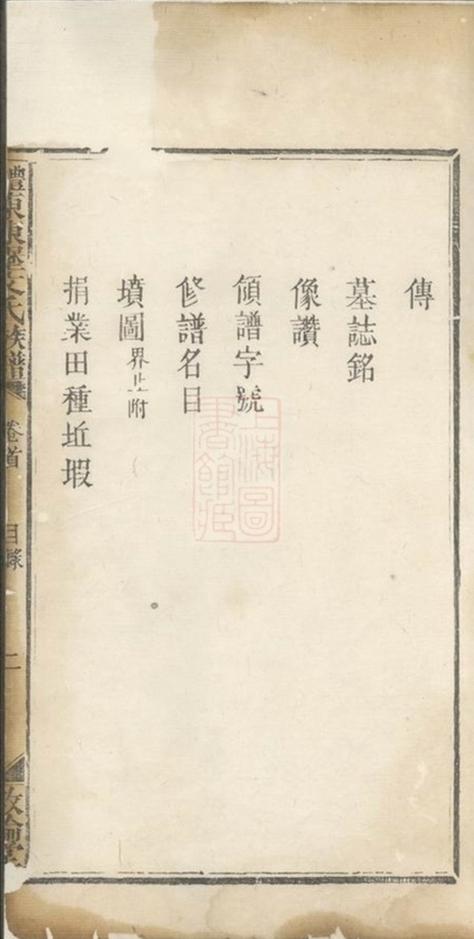 傳
墓誌銘
像讚
領譜字號
修譜名目
墳圖界止附
捐業田種坵瑕
族譜
卷首
目錄
二
上海圖書館藏